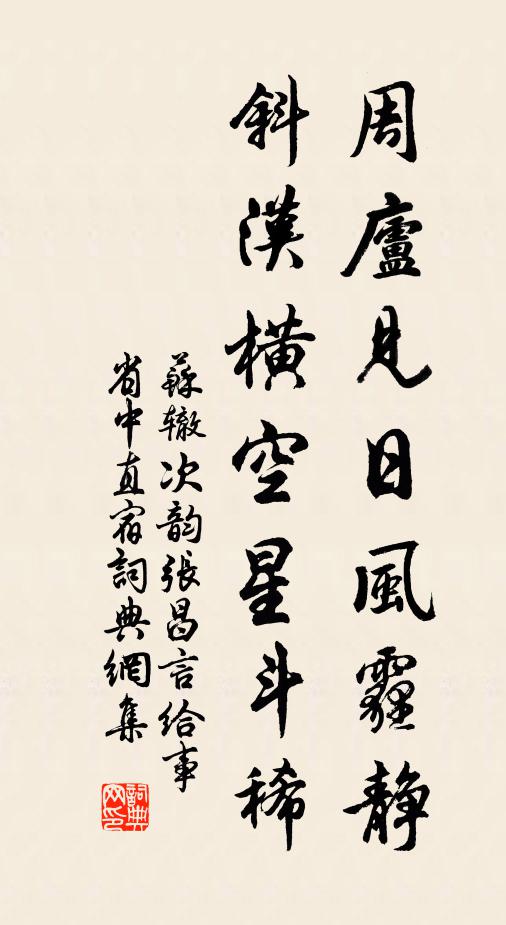 周廬見日風霾静
斜漢橫空星斗稀
蘇辙次韵張昌言給事
省中直宿詞典網集
詞典网印